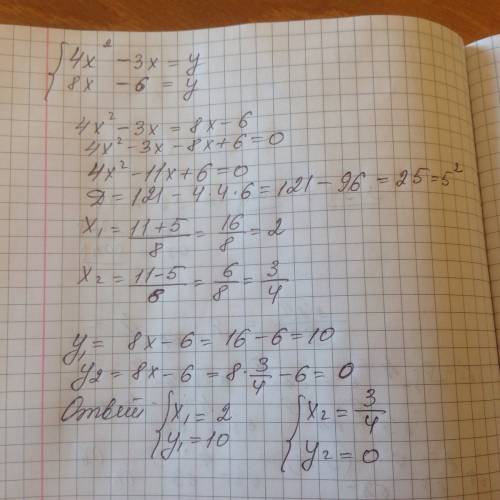 { 4x² - 3x = y
8x - 6 = y
4x² - 3x = 8x - 6
4x² - 3x - 8x + 6 = 0
4x² - 11x + 6 = 0
Д = 121 - 4·4·6 = 121 - 96 = 25 = 5²
x₁ = (11+5)/8 = 16/8 = 2
x₂ = (11-5)/8 = 6/8 = 3/4
y₁ = 8x - 6 = 16 - 6 = 10
y₂ = 8x - 6 = 8·3/4 - 6 = 0
Ответ { x₁ = 2 { x₂ = 3/4
y₁ = 10 y₂ = 0